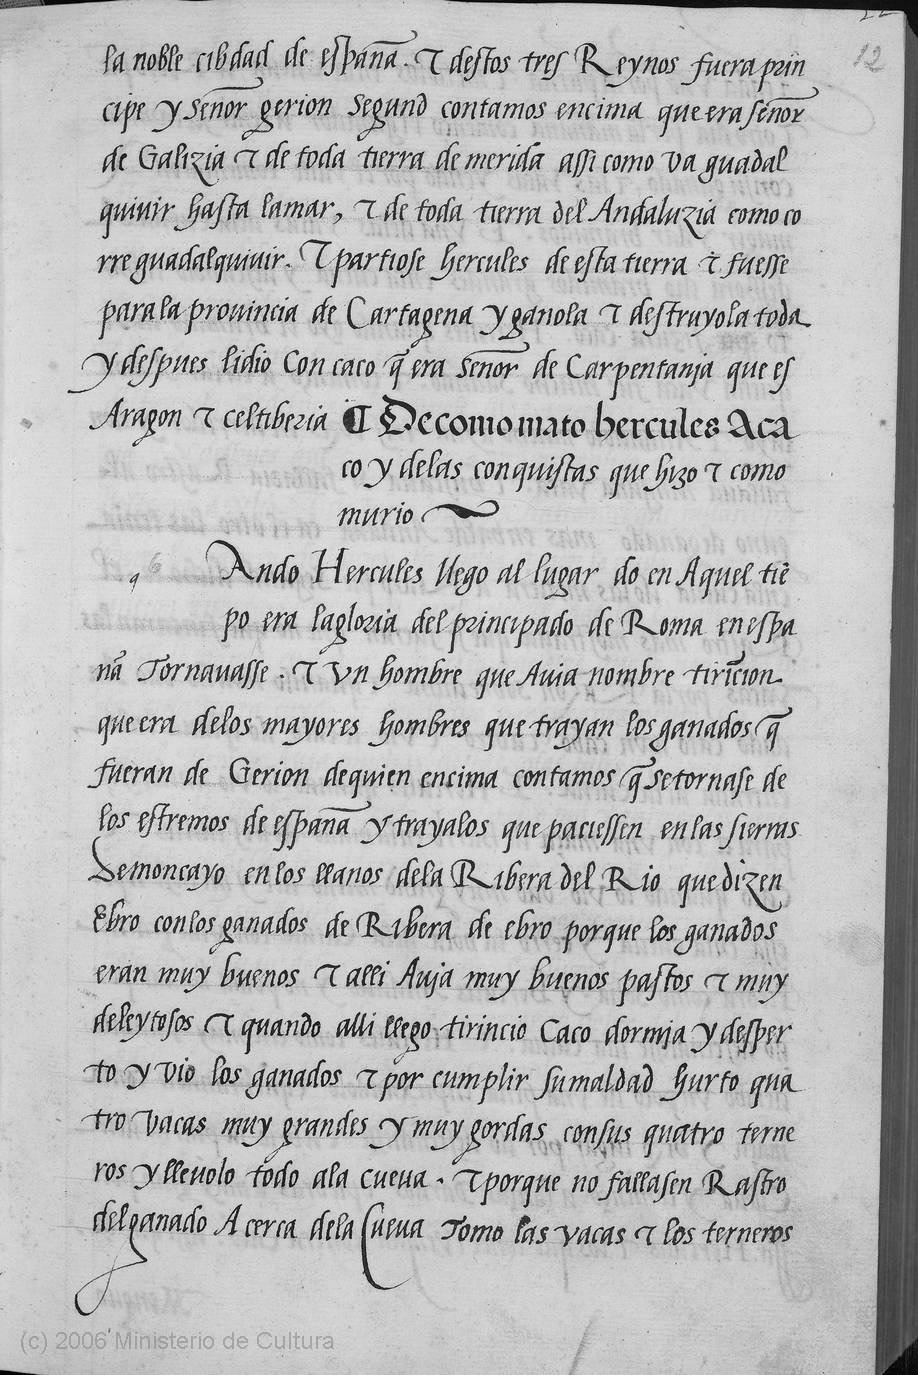 12
la noble cibdad de españa. τ destos tres Reynos fuera prin
cipe y señor gerion segund contamos encima que era señor
de Galizia τ de toda tierra de merida assi como va guadal
quivir hasta la mar, τ de toda tierra del Andaluzia como co
rre guadalquivir. τ partiose hercules de esta tierra τ fuesse
para la prouincia de Cartagena y ganola τ destruyola toda
y despues lidio Con caco q̃ era señor de Carpentanja que es
Aragon τ celtiberia ¶ De como mato hercules Aca
co y delas conquistas que hizo τ como
murio
Ando Hercules llego al lugar do en Aquel tiẽ
po era la gloria del principado de Roma en espa
ña Tornauasse. τ vn hombre que Auia nombre tiricion
que era delos mayores hombres que trayan los ganados q̃
fueran de Gerion de quien encima contamos q̃ se tornase de
los estremos de españa y trayalos que paciessen en las sierras
Demoncayo en los llanos dela Ribera del Rio que dizen
Ebro con los ganados de Ribera de ebro porque los ganados
eran muy buenos τ alli Auja muy buenos pastos τ muy
deleytosos τ quando alli llego tirincio Caco dormja y desper
to y vio los ganados τ por cumplir su maldad hurto qua
tro vacas muy grandes y muy gordas con sus quatro terne
ros y lleuolo todo ala cueua. τ porque no fallasen Rastro
del ganado A cerca dela Cueua Tomo las vacas τ los terneros
(c) 2006 Ministerio de Cultura